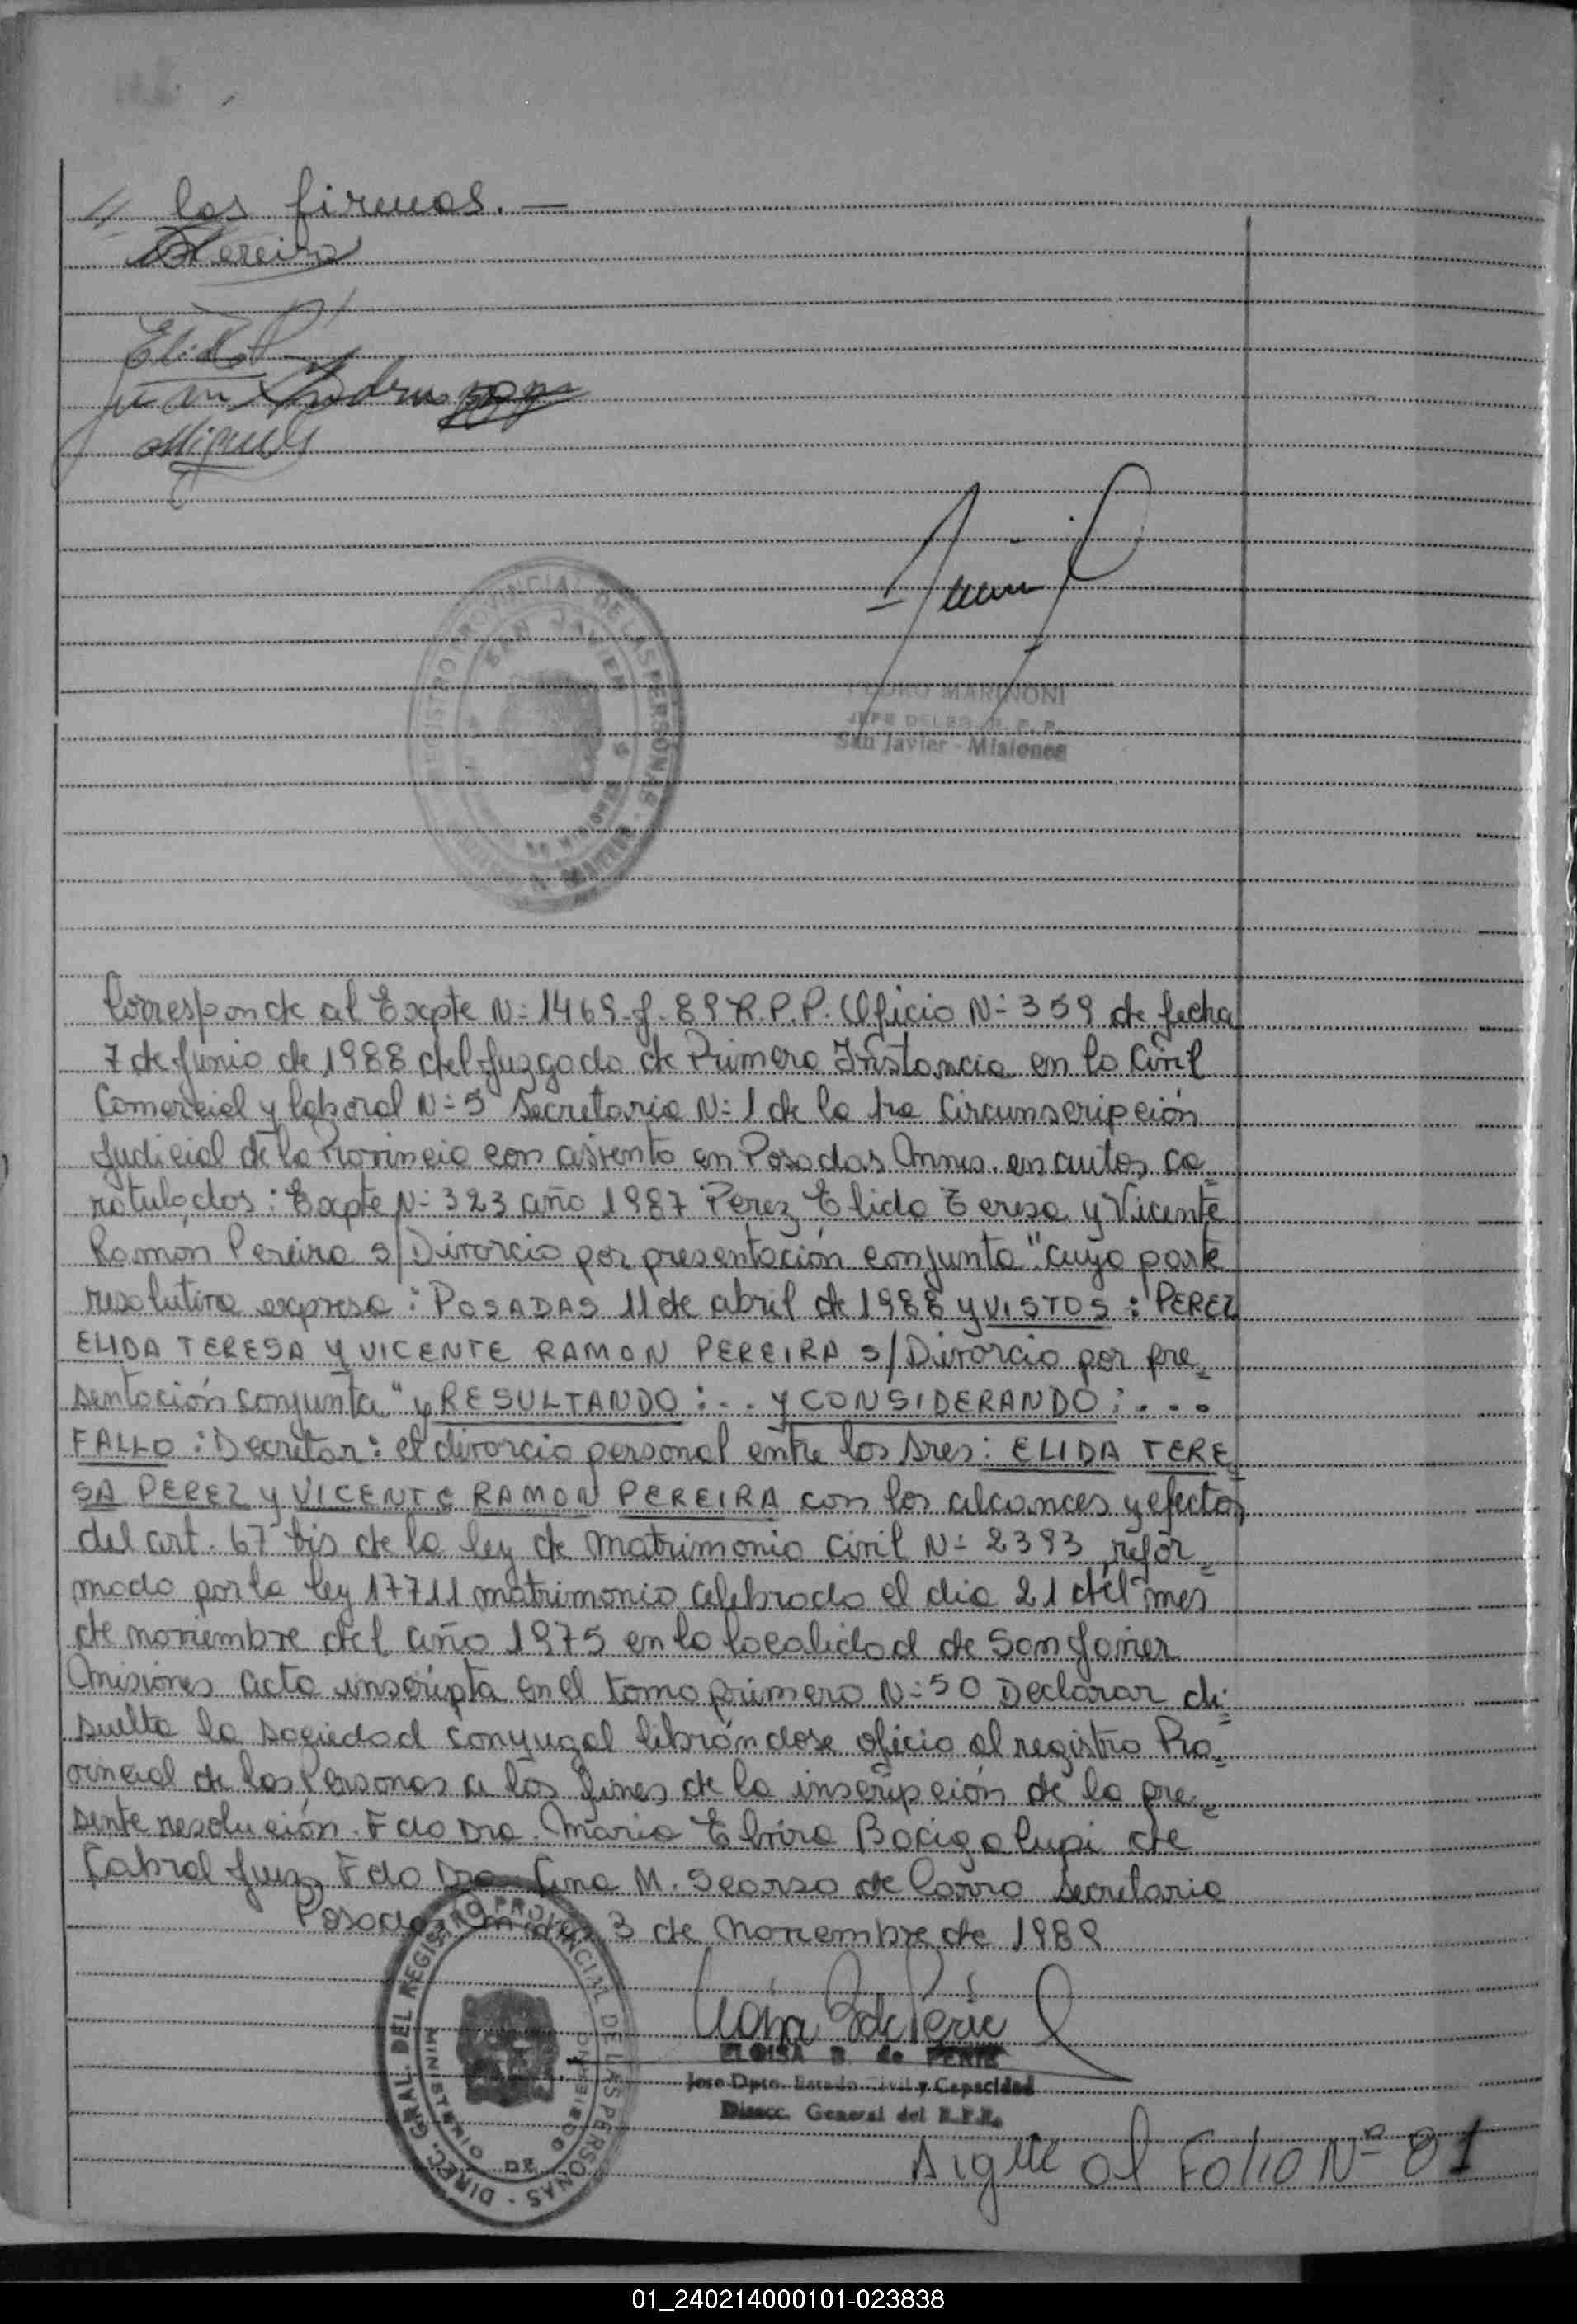 // las firmas.—
Pereira
Elida
Juan
Miguel
REGISTRO PROVINCIAL DE LAS PERSONAS
SAN JAVIER
PEDRO MARINONI
JEFE DELEG. R. P. P.
San Javier - Misiones
Corresponde al Expte N:1469-J-89 R.P.P. Oficio N: 359 de fecha
7 de Junio de 1988 del Juzgado de Primera Instancia en lo Civil
Comercial y laboral N:5 Secretaria N:1 de la 1ra Circunscripción
Judicial de la Provincia con asiento en Posadas Mnes. en autos ca=
ratulados: Expte N:323 año 1987 Perez Elida Teresa y Vicente
Ramon Pereira s/Divorcio por presentación conjunta". cuya parte
resolutiva expresa: POSADAS 11 de abril de 1988 y VISTOS: "PEREZ
ELIDA TERESA Y VICENTE RAMON PEREIRA s/Divorcio por pre=
sentación conjunta" y RESULTANDO:... Y CONSIDERANDO:...
FALLO: Decretar: el divorcio personal entre los Sres: ELIDA TERE=
SA PEREZ y VICENTE RAMON PEREIRA con los alcances y efectos
del art. 67 bis de la ley de matrimonio civil N: 2393, refor=
mado por la ley 17711 matrimonio celebrado el dia 21 del mes
de noviembre del año 1975 en la localidad de San Javier
Misiones acta inscripta en el tomo primero N:50 Declarar di=
suelta la sociedad conyugal librándose oficio al registro Pro=
vincial de las Personas a los fines de la inscripción de la pre=
sente resolución. Fdo Dra. Maria Elvira Bacigalupi de
Cabral Juez Fdo Dra Lina M. Scarso de Carro Secretaria
Posadas, Mnes, 3 de Noviembre de 1989
DIREC. GRAL. DEL REGISTRO PROVINCIAL DE LAS PERSONAS
MINISTERIO DE GOBIERNO
ELOISA B. de PERIE
Jefe Dpto. Estado Civil y Capacidad
Direcc. General del R.P.P.
Sigue al Folio Nº 81
01_240214000101-023838